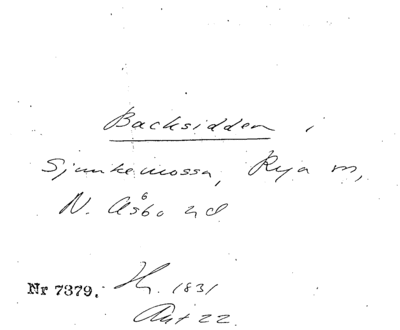 Backsidden i
Sjunkemossa, Rya sn,
N. Åsbo hd
Nr 7379. Hr. 1831
Akt 22